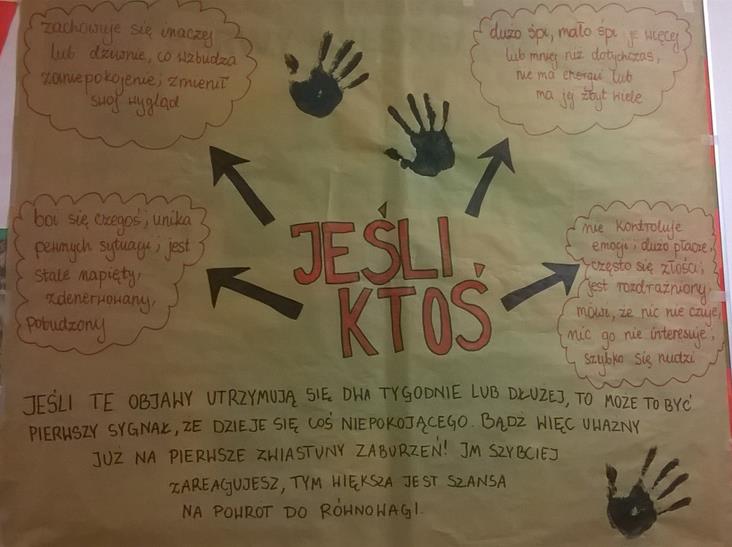 zachowuje się inaczej
lub dziwnie, co wzbudza
zaniepokojenie; zmienił
swój wygląd
dużo śpi, mało śpi je więcej
lub mniej niż dotychczas,
nie ma energii lub
ma jej zbyt wiele
boi się czegoś; unika
pewnych sytuacji; jest
stale napięty,
zdenerwowany,
pobudzony
JEŚLI
KTOŚ
nie kontroluje
emocji; dużo płacze,
często się złości;
jest rozdrażniony
mówi, że nic nie czuje,
nic go nie interesuje,
szybko się nudzi
JEŚLI TE OBJAWY UTRZYMUJĄ SIĘ DWA TYGODNIE LUB DŁUŻEJ, TO MOŻE TO BYĆ
PIERWSZY SYGNAŁ, ŻE DZIEJE SIĘ COŚ NIEPOKOJĄCEGO. BĄDŹ WIĘC UWAŻNY
JUŻ NA PIERWSZE ZWIASTUNY ZABURZEŃ! IM SZYBCIEJ
ZAREAGUJESZ, TYM WIĘKSZA JEST SZANSA
NA POWRÓT DO RÓWNOWAGI.